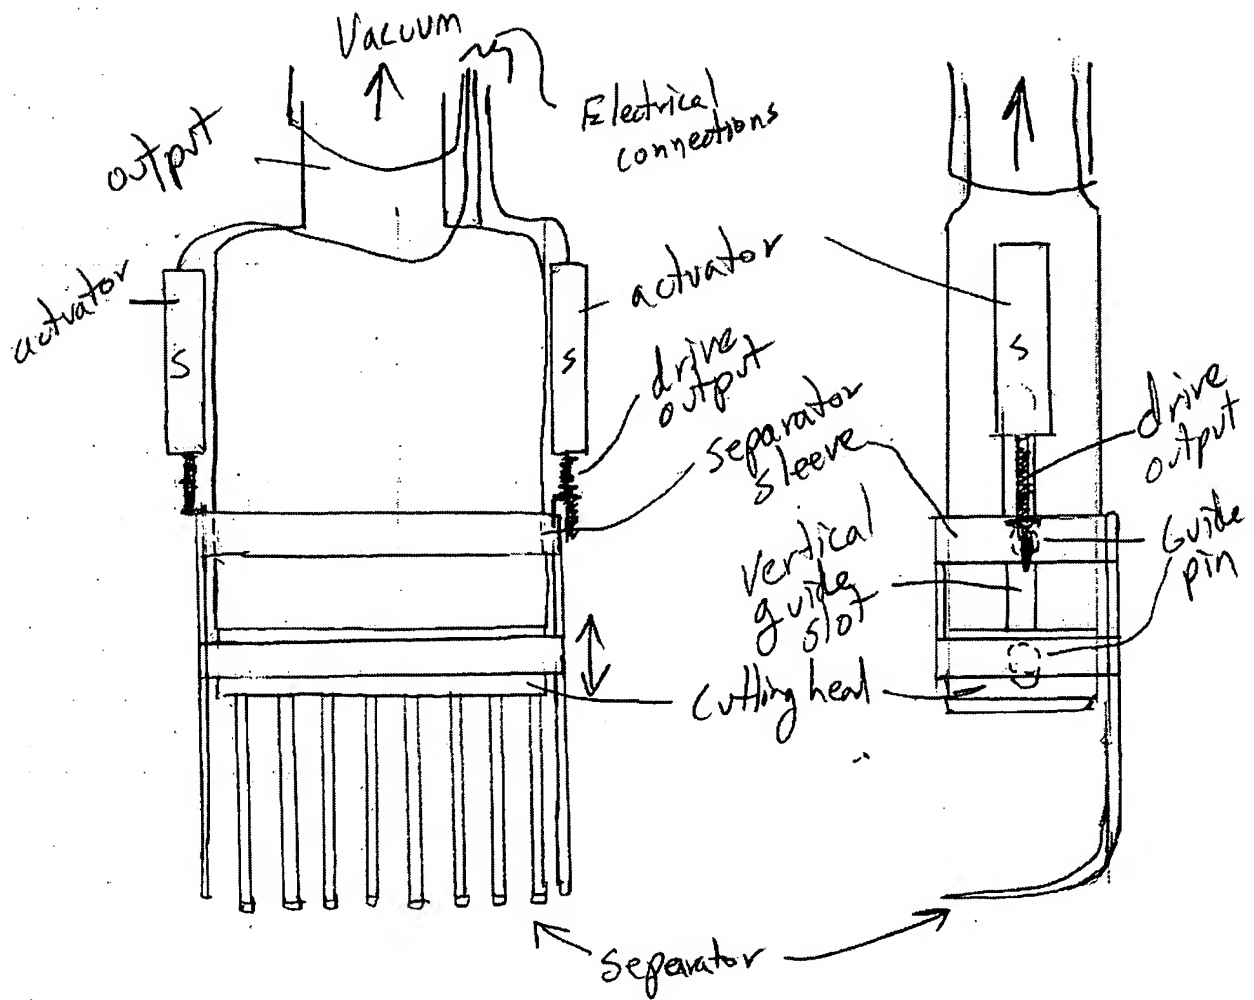 Vacuum
Electrical
connections
output
actuator
actuator
S
S
S
drive
output
separator
sleeve
drive
output
vertical
guide
slot
Guide
pin
Cutting head
Separator